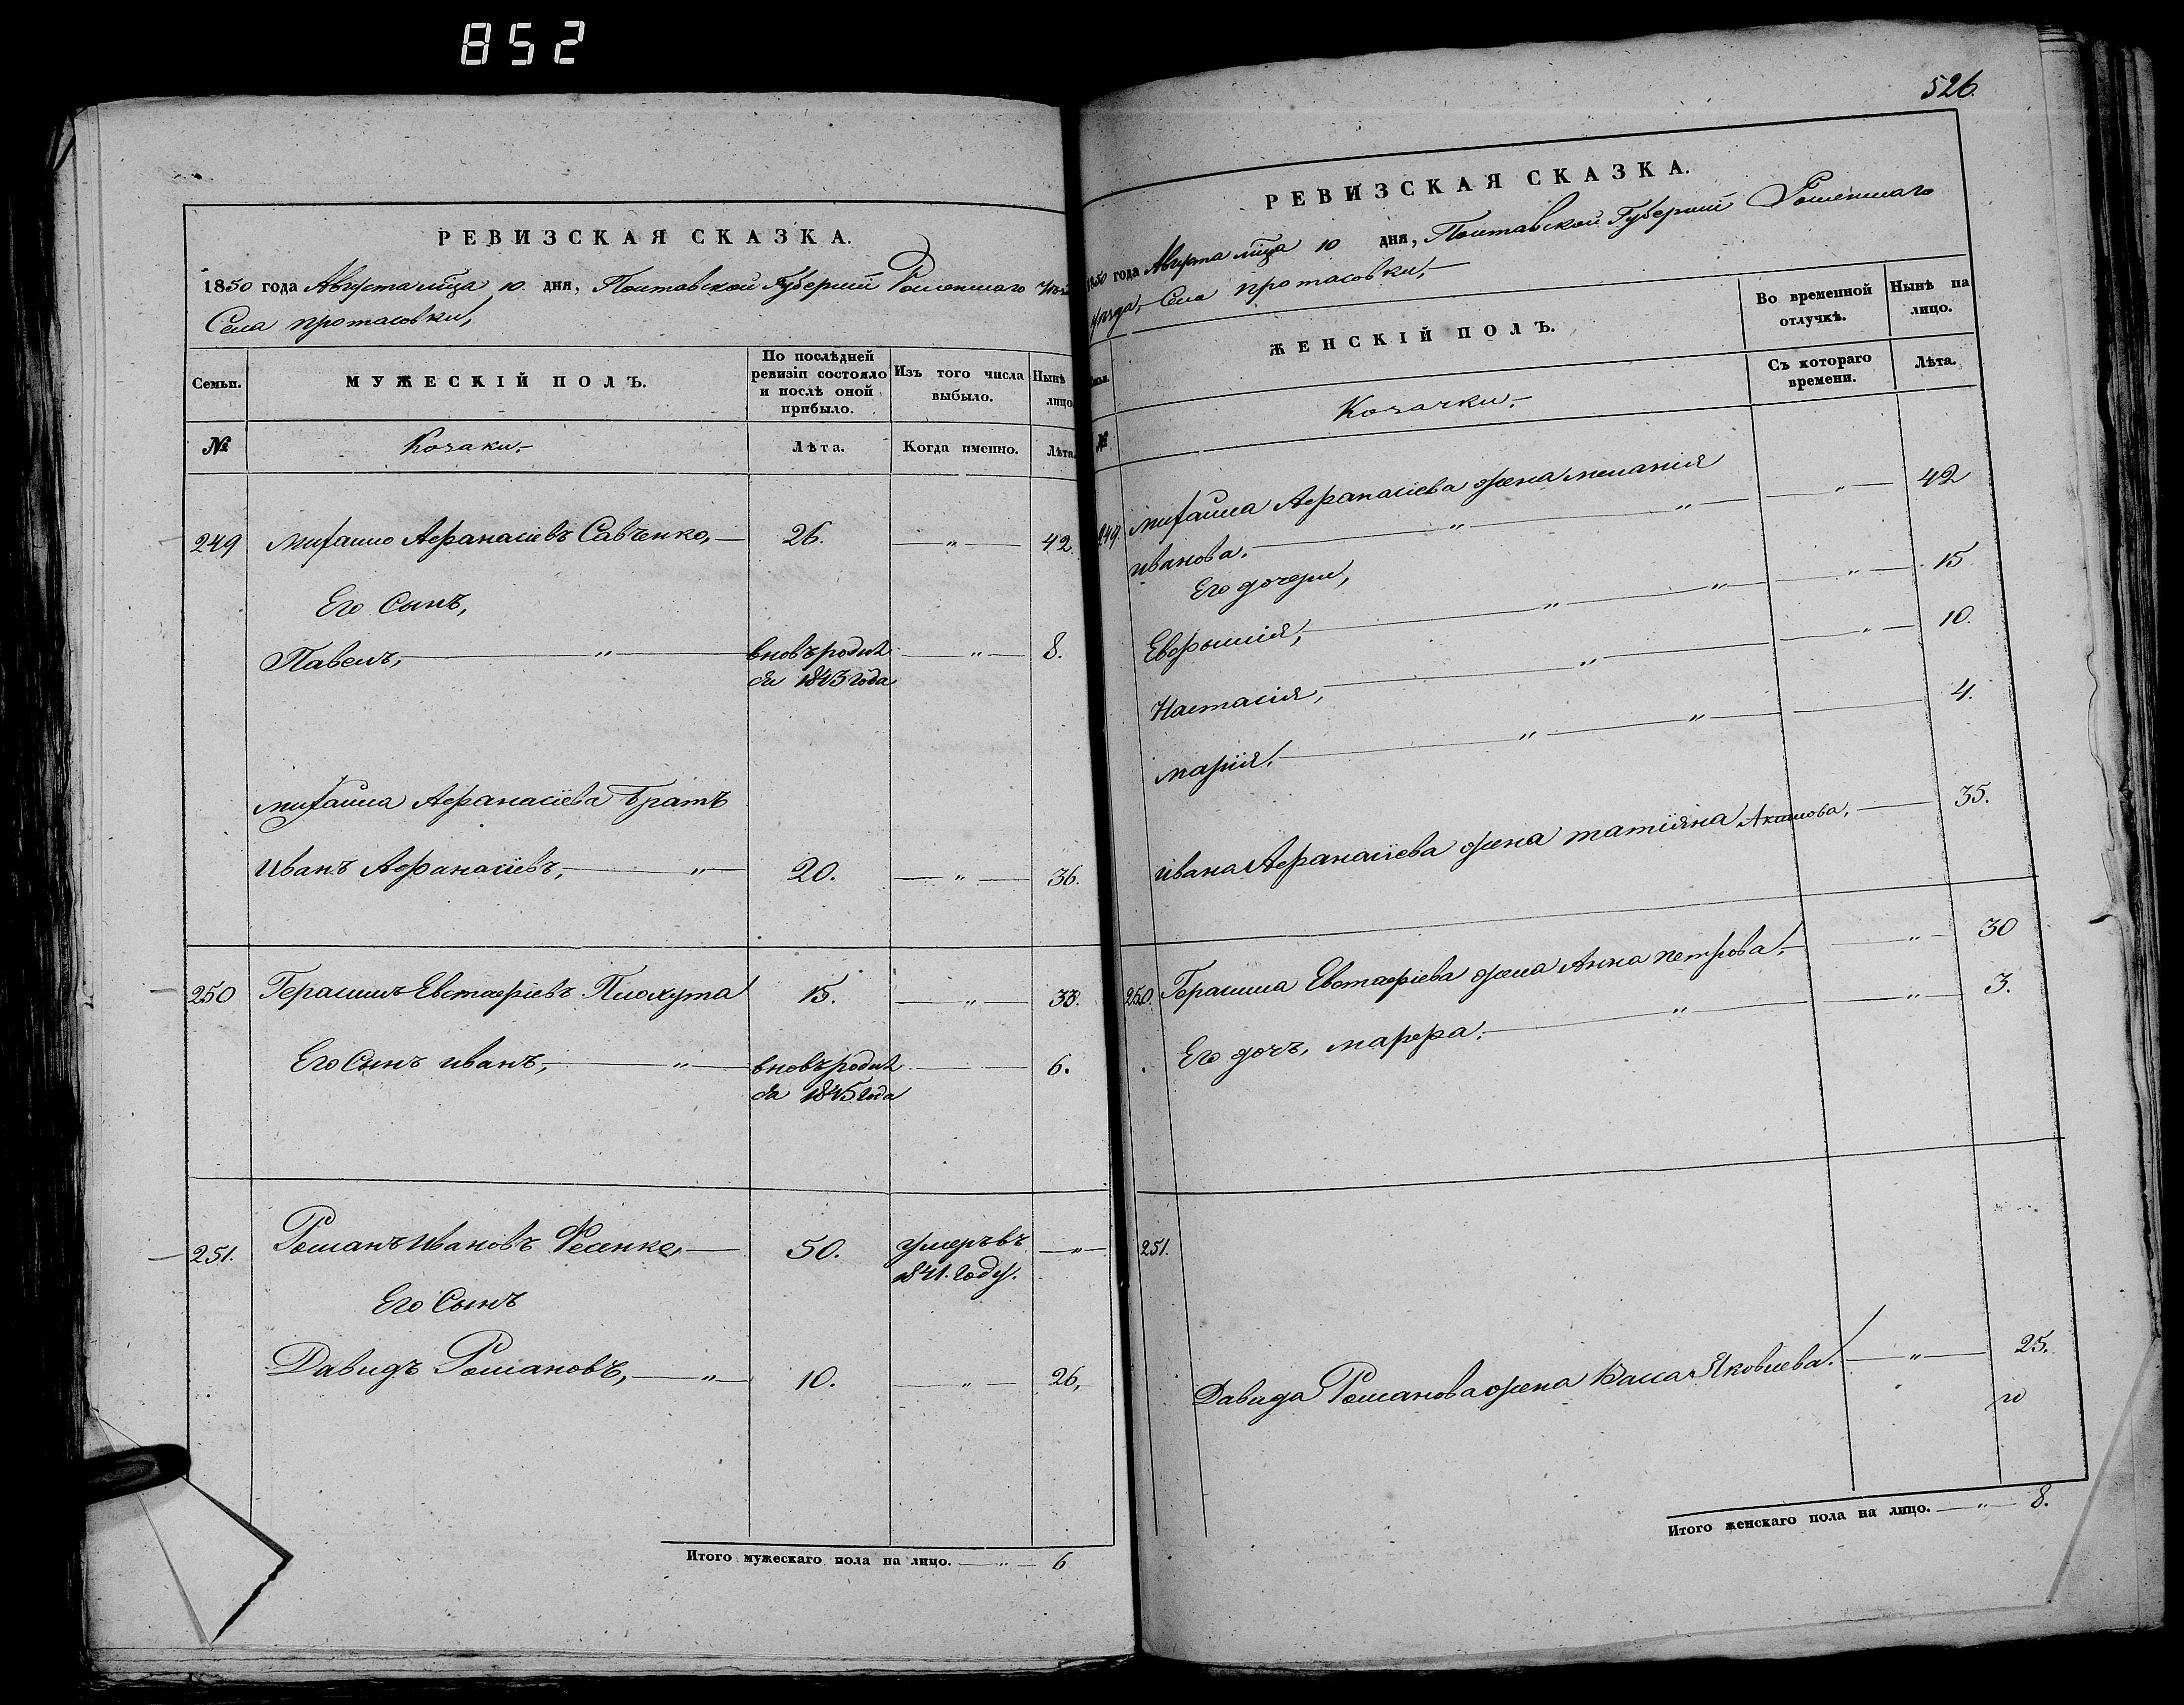 852
РЕВИЗСКАЯ СКАЗКА.
1850 года Августа мца 10 дня, Полтавской Губернии Роменшаго
Села протасовки,
Семьи.
МУЖЕСКІЙ ПОЛЪ.
По послѣдней ревизіи состояло и послѣ оной прибыло.
Изъ того числа выбыло.
Нынѣ лицо.
№
Козаки.
Лѣта.
Когда именно.
Лѣта.
249 михаило Афанасіевъ Савченко, 26. — " — 42.
Его Сынъ,
Павелъ, — " — вновъ родил — " — 8.
ся 1843 года
михаила Афанасіева братъ
Иванъ Афанасіевъ, — " — 20. — " — 36.
250 Герасимъ Евстафіевъ Плохута 15. — " — 33.
Его Сынъ иванъ, — " — вновъ родил — 6.
ся 1845 года
251. Романъ Ивановъ Фесенко, — 50. умеръ въ — " —
1841. году.
Его Сынъ
Давидъ Романовъ, — " — 10. — " — 26,
Итого мужескаго пола на лицо. — " — 6
526.
РЕВИЗСКАЯ СКАЗКА.
1850 года Августа мца 10 дня, Полтавской Губернии Роменшаго
уѣзда, Села протасовки,
ЖЕНСКІЙ ПОЛЪ.
Во временной отлучкѣ.
Нынѣ на лицо.
Съ котораго времени.
Лѣта.
№
Козачки.
249. михаила Афанасіева жена меланія
иванова. — " — " — " — 42
Его дочери,
Евфимія, — " — " — " — 15
Настасія, — " — " — 10.
марія. — " — " — 4.
ивана Афанасіева жена татіяна Акимова, — 35.
250. Герасима Евстафіева жена Анна петрова. — " — 30
Его дочъ, марфа. — " — " — 3.
251.
Давида Романова жена Васса Яковлева. — " — 25.
Итого женскаго пола на лицо. — " — 8.